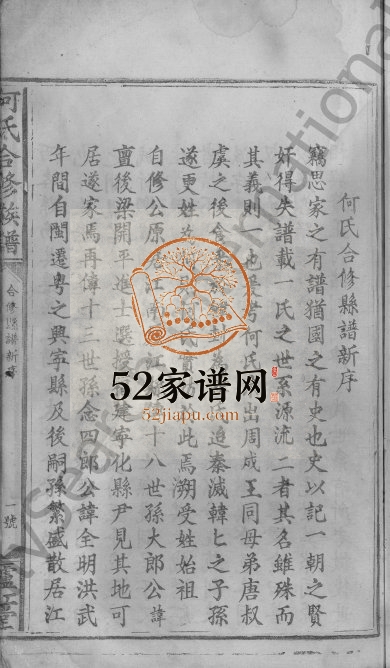 何氏合修縣譜新序
竊思家之有譜猶國之有史也史以記一朝之賢
奸得失譜載一氏之世系源流二者其名雖殊而
其義則一也 何氏 出周成王同母弟唐叔
虞之後 封 氏迨秦滅韓之子孫
遂更姓 此焉溯受姓始祖
自修公原 江 十八世孫大郎公諱
亶後梁開平進士選授 建寧化縣尹見其地可
居遂家焉再傳十三世孫念四郎公諱全明洪武
年間自閩遷粵之興寧縣及後嗣孫繁盛散居江
何氏合修族譜
合修縣譜新序
一號
廬江堂
52家谱网
52jiapu.com